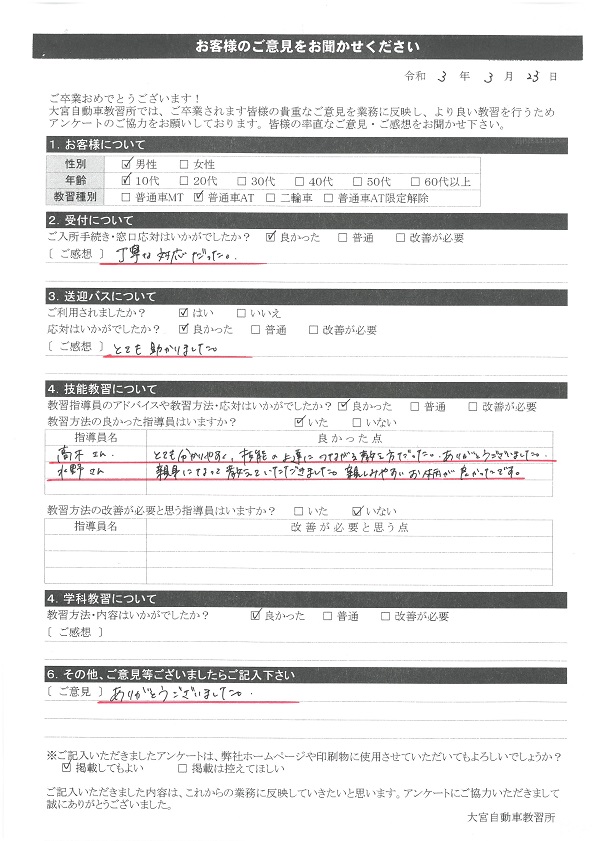 お客様のご意見をお聞かせください
令和 3 年 3 月 23 日
ご卒業おめでとうございます！
大宮自動車教習所では、ご卒業されます皆様の貴重なご意見を業務に反映し、より良い教習を行うため
アンケートのご協力をお願いしております。皆様の率直なご意見・ご感想をお聞かせ下さい。
1. お客様について
性別 ☑男性 □女性
年齢 ☑10代 □20代 □30代 □40代 □50代 □60代以上
教習種別 □普通車MT ☑普通車AT □二輪車 □普通車AT限定解除
2. 受付について
ご入所手続き・窓口応対はいかがでしたか？ ☑良かった □普通 □改善が必要
［ ご感想 ］丁寧な対応だった。
3. 送迎バスについて
ご利用されましたか？ ☑はい □いいえ
応対はいかがでしたか？ ☑良かった □普通 □改善が必要
［ ご感想 ］とても助かりました。
4. 技能教習について
教習指導員のアドバイスや教習方法・応対はいかがでしたか？ ☑良かった □普通 □改善が必要
教習方法の良かった指導員はいますか？ ☑いた □いない
指導員名 良かった点
高木さん. とても分かりやすく、技能の上達につながる教え方だった。ありがとうございました.
水野さん 親身になって教えていただきました。親しみやすいお人柄が良かったです。
教習方法の改善が必要と思う指導員はいますか？ □いた ☑いない
指導員名 改善が必要と思う点
4. 学科教習について
教習方法・内容はいかがでしたか？ ☑良かった □普通 □改善が必要
［ ご感想 ］
6. その他、ご意見等ございましたらご記入下さい
［ ご意見 ］ありがとうございました。
※ご記入いただきましたアンケートは、弊社ホームページや印刷物に使用させていただいてもよろしいでしょうか？
☑掲載してもよい □掲載は控えてほしい
ご記入いただきました内容は、これからの業務に反映していきたいと思います。アンケートにご協力いただきまして
誠にありがとうございました。
大宮自動車教習所